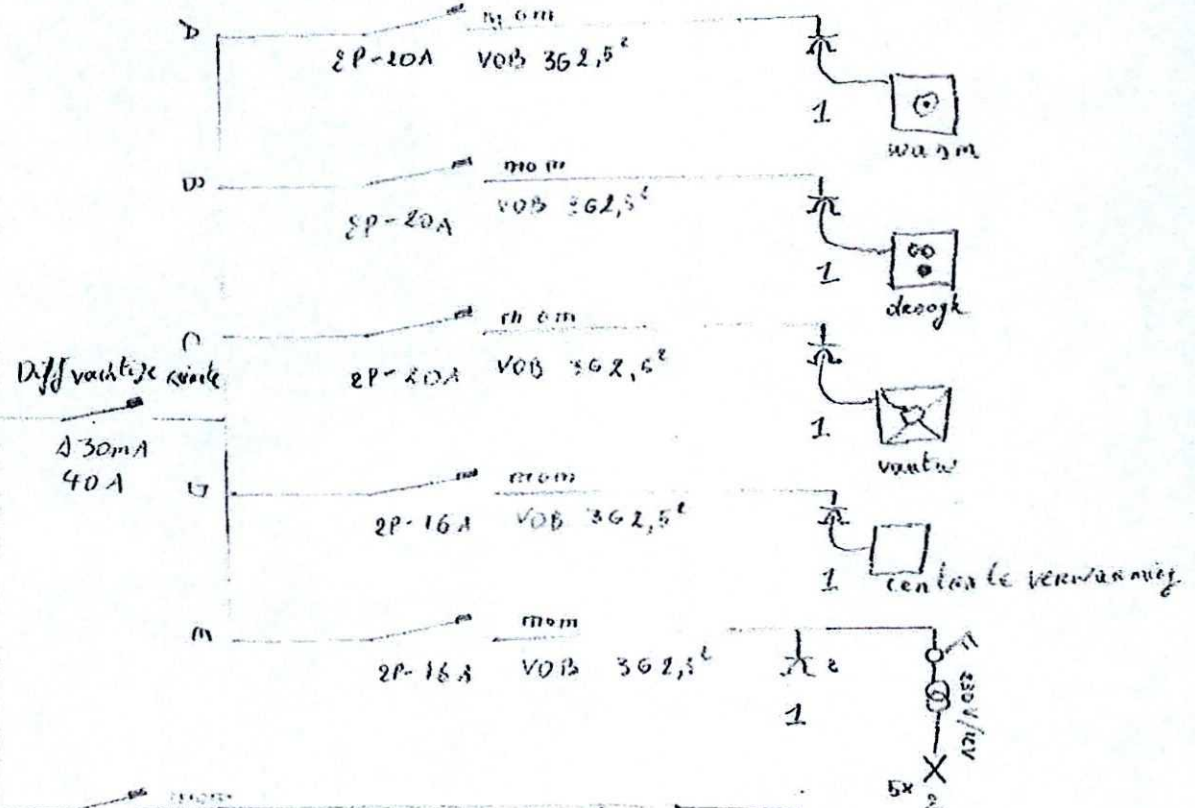 A
2P-20A VOB 3G2,5²
1
wasm
B
2P-20A VOB 3G2,5²
1
droogk
C
2P-20A VOB 3G2,5²
1
Diff vochtige ruimte
Δ30mA
40A
D
2P-16A VOB 3G2,5²
1
centrale verwarming
E
2P-16A VOB 3G2,5²
2
1
230V/12V
5x
2